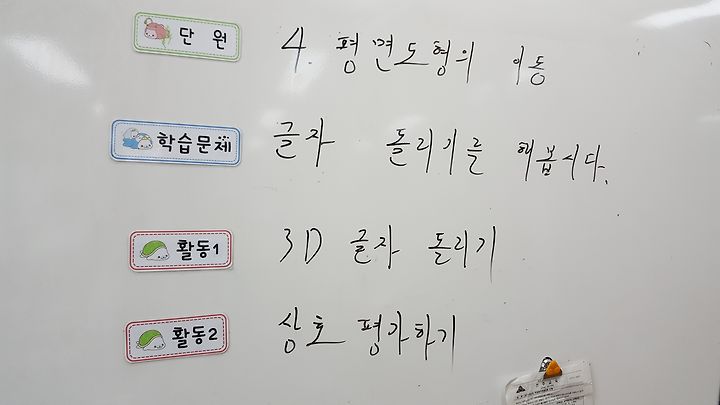 단 원 4. 평면도형의 이동
학습문제 글자 돌리기를 해봅시다.
활동1 3D 글자 돌리기
활동2 상호 평가하기